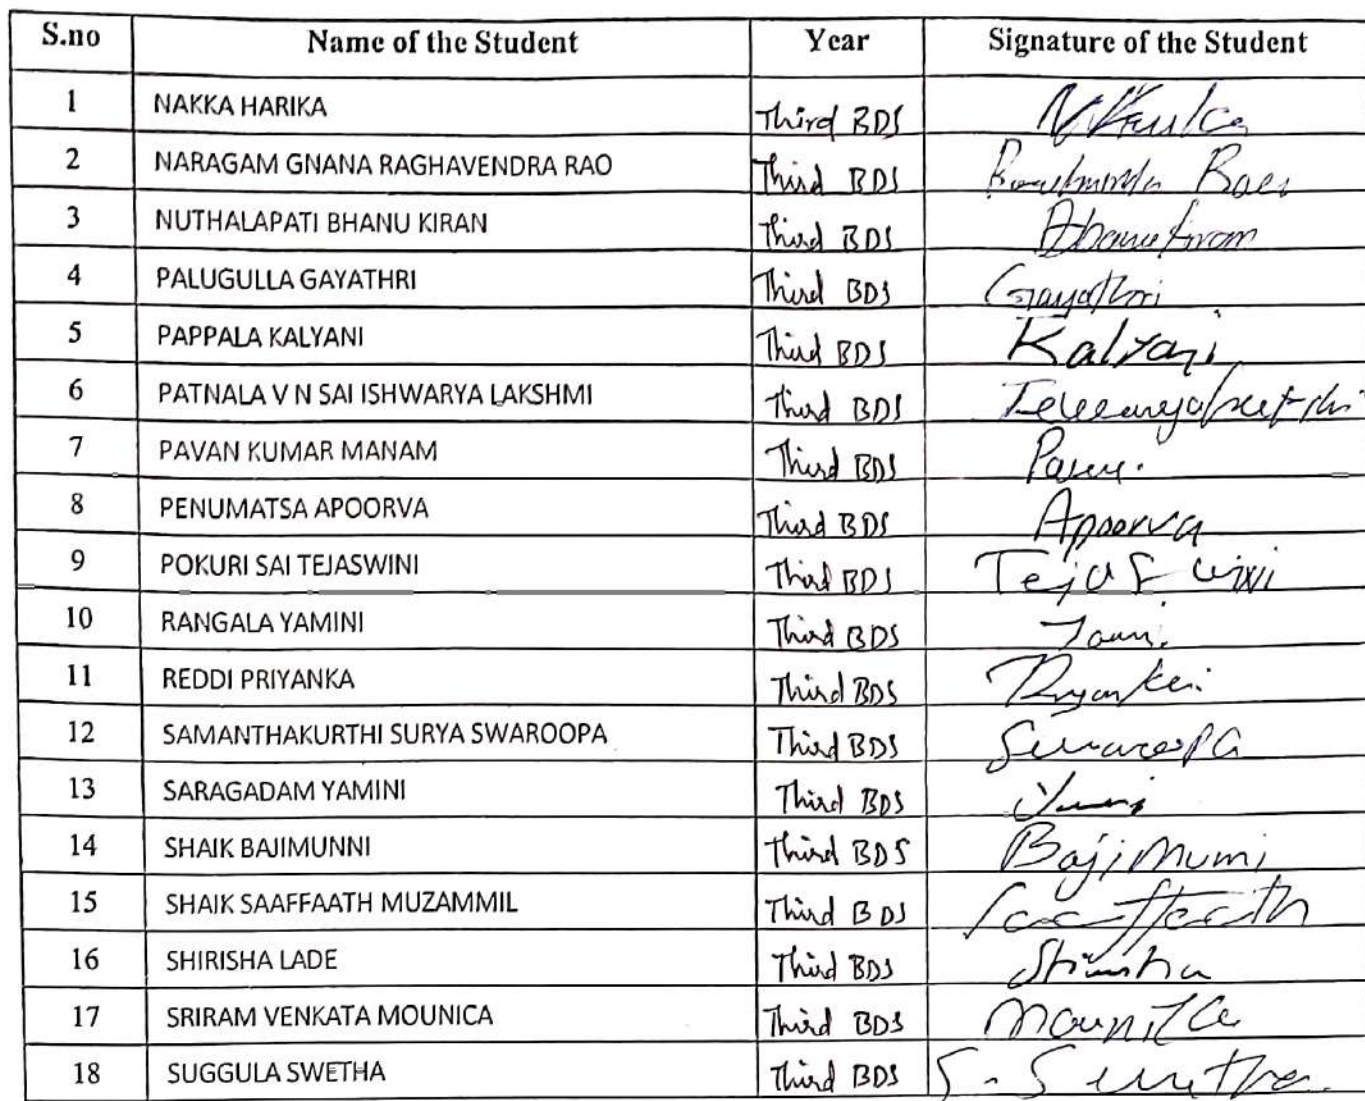 S.no Name of the Student Year Signature of the Student
1 NAKKA HARIKA Third BDS
2 NARAGAM GNANA RAGHAVENDRA RAO Third BDS
3 NUTHALAPATI BHANU KIRAN Third BDS
4 PALUGULLA GAYATHRI Third BDS Gayathri
5 PAPPALA KALYANI Third BDS Kalyani
6 PATNALA V N SAI ISHWARYA LAKSHMI Third BDS
7 PAVAN KUMAR MANAM Third BDS
8 PENUMATSA APOORVA Third BDS Apoorva
9 POKURI SAI TEJASWINI Third BDS Tejaswini
10 RANGALA YAMINI Third BDS
11 REDDI PRIYANKA Third BDS
12 SAMANTHAKURTHI SURYA SWAROOPA Third BDS
13 SARAGADAM YAMINI Third BDS
14 SHAIK BAJIMUNNI Third BDS
15 SHAIK SAAFFAATH MUZAMMIL Third BDS
16 SHIRISHA LADE Third BDS
17 SRIRAM VENKATA MOUNICA Third BDS
18 SUGGULA SWETHA Third BDS S. Swetha